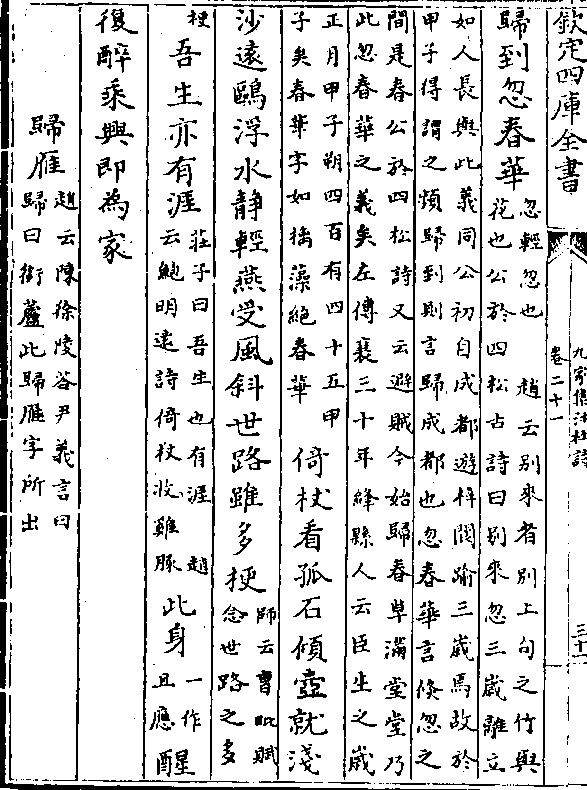 欽定四庫全書
九家集注杜詩
卷二十一
三十一
歸到忽春華
忽輕忽也 趙云別來者別上句之竹與
花也公於四松古詩曰別來忽三歳離立
如人長與此義同公初自成都遊梓閬踰三歳焉故於
甲子得謂之頻歸到則言歸成都也忽春華言倐忽之
間是春公於四松詩又云避賊今始歸春草滿堂堂乃
此忽春華之義矣左傳襄三十年絳縣人云臣生之歳
正月甲子朔四百有四十五甲
子矣春華字如摛藻絶春華
倚杖看孤石傾壺就淺
沙遠鷗浮水静輕燕受風斜世路雖多梗
師云曹昭賦
念世路之多
梗
吾生亦有涯
莊子曰吾生也有涯 趙
云鮑明遠詩倚杖牧雞豚
此身
一作
且應
醒
復醉乘興即為家
歸雁
趙云陳徐陵答尹義言曰
歸曰銜蘆此歸雁字所出